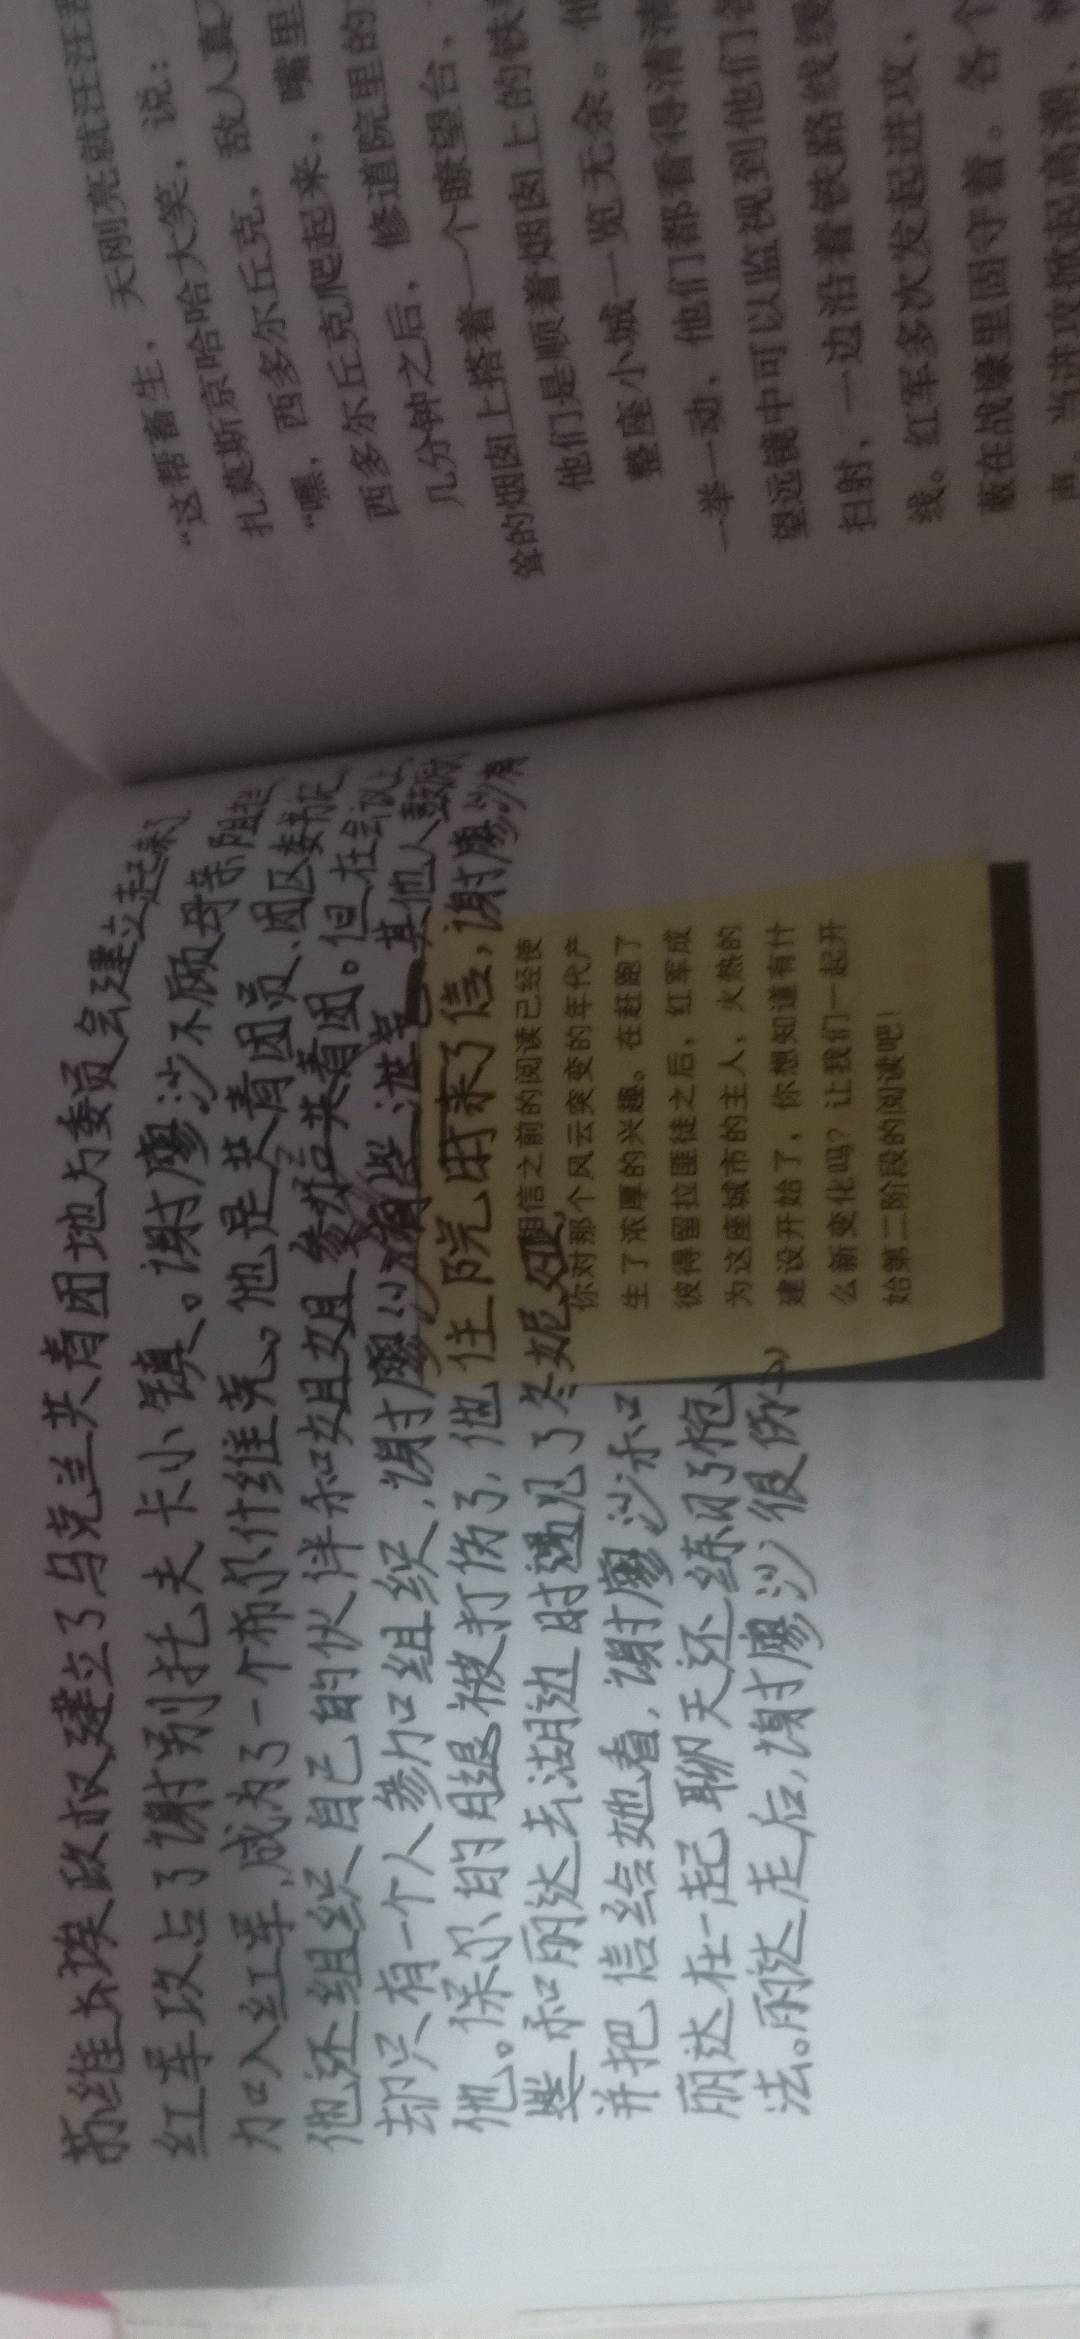 苏维埃政权建立了乌克兰共青团地方委员会建立起来了
红军攻占了谢别托夫卡小镇。谢廖沙不顾母亲阻拦
加入红军,成为了一个布尔什维克。他是共青团员、团区委书记
他还组织自己的伙伴和姐姐参加共青团。但在会议上
却只有一个人参加组织,谢廖沙有些泄气其他人鼓励
他。保尔的腿被打伤了,他住院时来了信,谢廖沙有
些和丽达去湖边时遇见了冬妮娅,
并把信给她看,谢廖沙和
丽达在一起聊天还练习了枪
法。丽达走后,谢廖沙很伤心
相信之前的阅读已经使
你对那个风云突变的年代产
生了浓厚的兴趣。在赶跑了
彼得留拉匪徒之后,红军成
为这座城市的主人,火热的
建设开始了,你想知道有什
么新变化吗?让我们一起开
始第二阶段的阅读吧!
天刚亮就汪汪
“这帮畜生,
扎莫斯京哈哈大笑,说:
“嘿,西多尔丘克,敌人真
西多尔丘克爬起来,嘴里
几分钟之后,修道院里的
耸的烟囱上搭着一个瞭望台,
他们是顺着烟囱上的铁
整座小城一览无余。
一举一动,他们都看得清清
望远镜中可以监视到他们
扫射,一边沿着铁路线缓
线。红军多次发起进攻,
蔽在战壕里固守着。各个
声。当进攻掀起高潮,